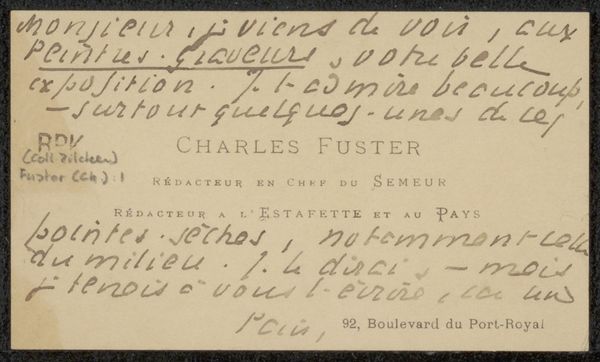 Monsieur, je viens de voir, aux
Peintres-Graveurs, votre belle
exposition. Je l'admire beaucoup,
— surtout quelques-unes de ces
RPK
(Coll Zilcken)
Fuster (Ch.): 1
CHARLES FUSTER
RÉDACTEUR EN CHEF DU SEMEUR
RÉDACTEUR A L'ESTAFETTE ET AU PAYS
pointes-sèches, notamment celle
du milieu. Je le dirai, — mais
je tenais à vous l'écrire, un
Paris,
92, Boulevard du Port-Royal